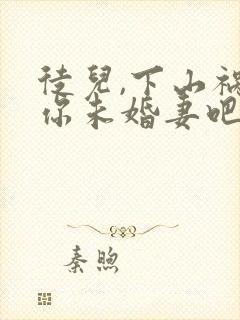 徒兒,下山禍
你未婚妻吧
秦煦